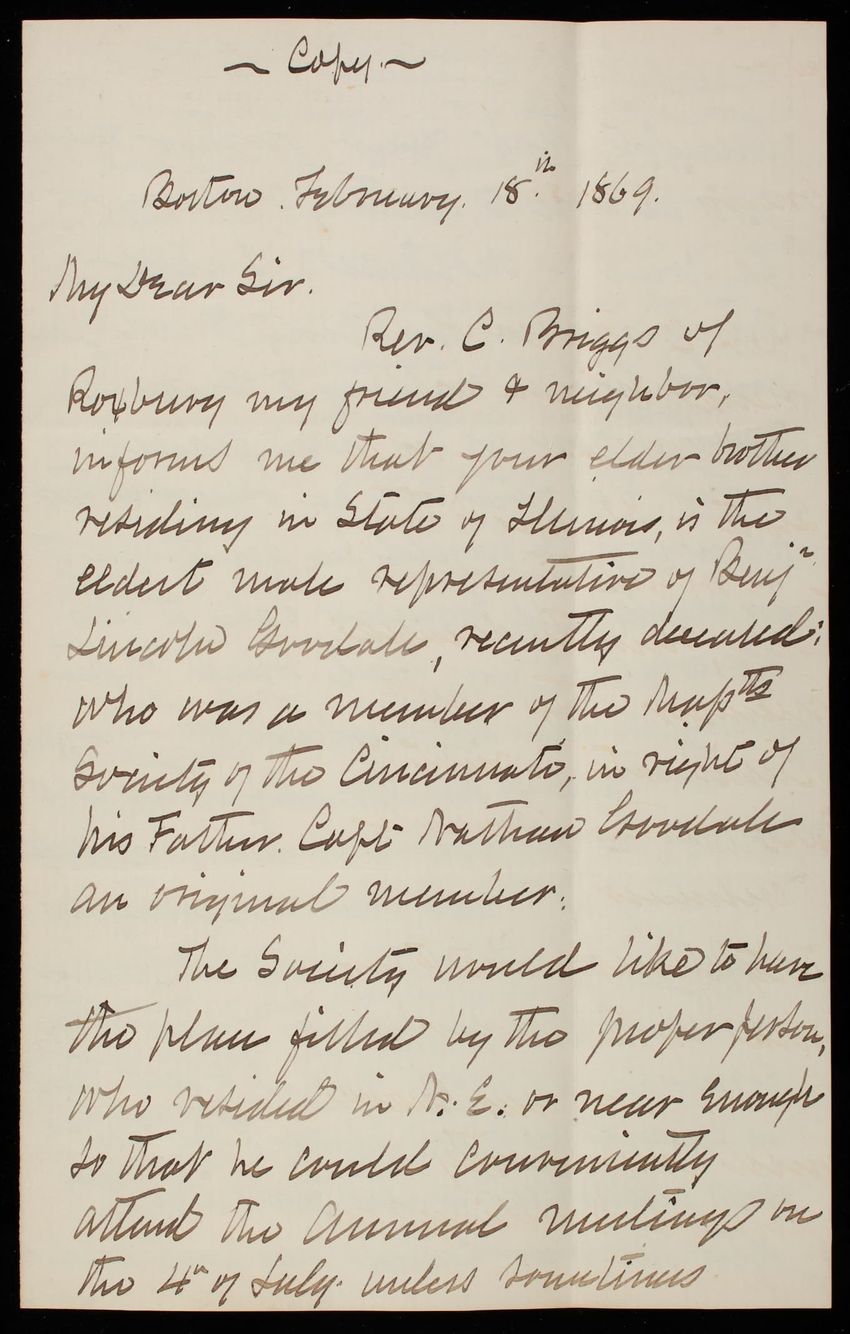 ~ Copy. ~
Boston. February. 18th. 1869.
My Dear Sir.
Rev. C. Briggs of
Roxbury my friend & neighbor,
informs me that your elder brother
residing in State of Illinois, is the
eldest male representative of Benjn
Lincoln Goodale, recently deceased:
who was a member of the Massts
Society of the Cincinnati, in right of
his Father. Capt Nathan Goodale
an original member.
The Society would like to have
the place filled by the proper person,
who resided in N. E. or near enough
so that he could conveniently
attend the annual meetings on
the 4th of July. unless sometimes